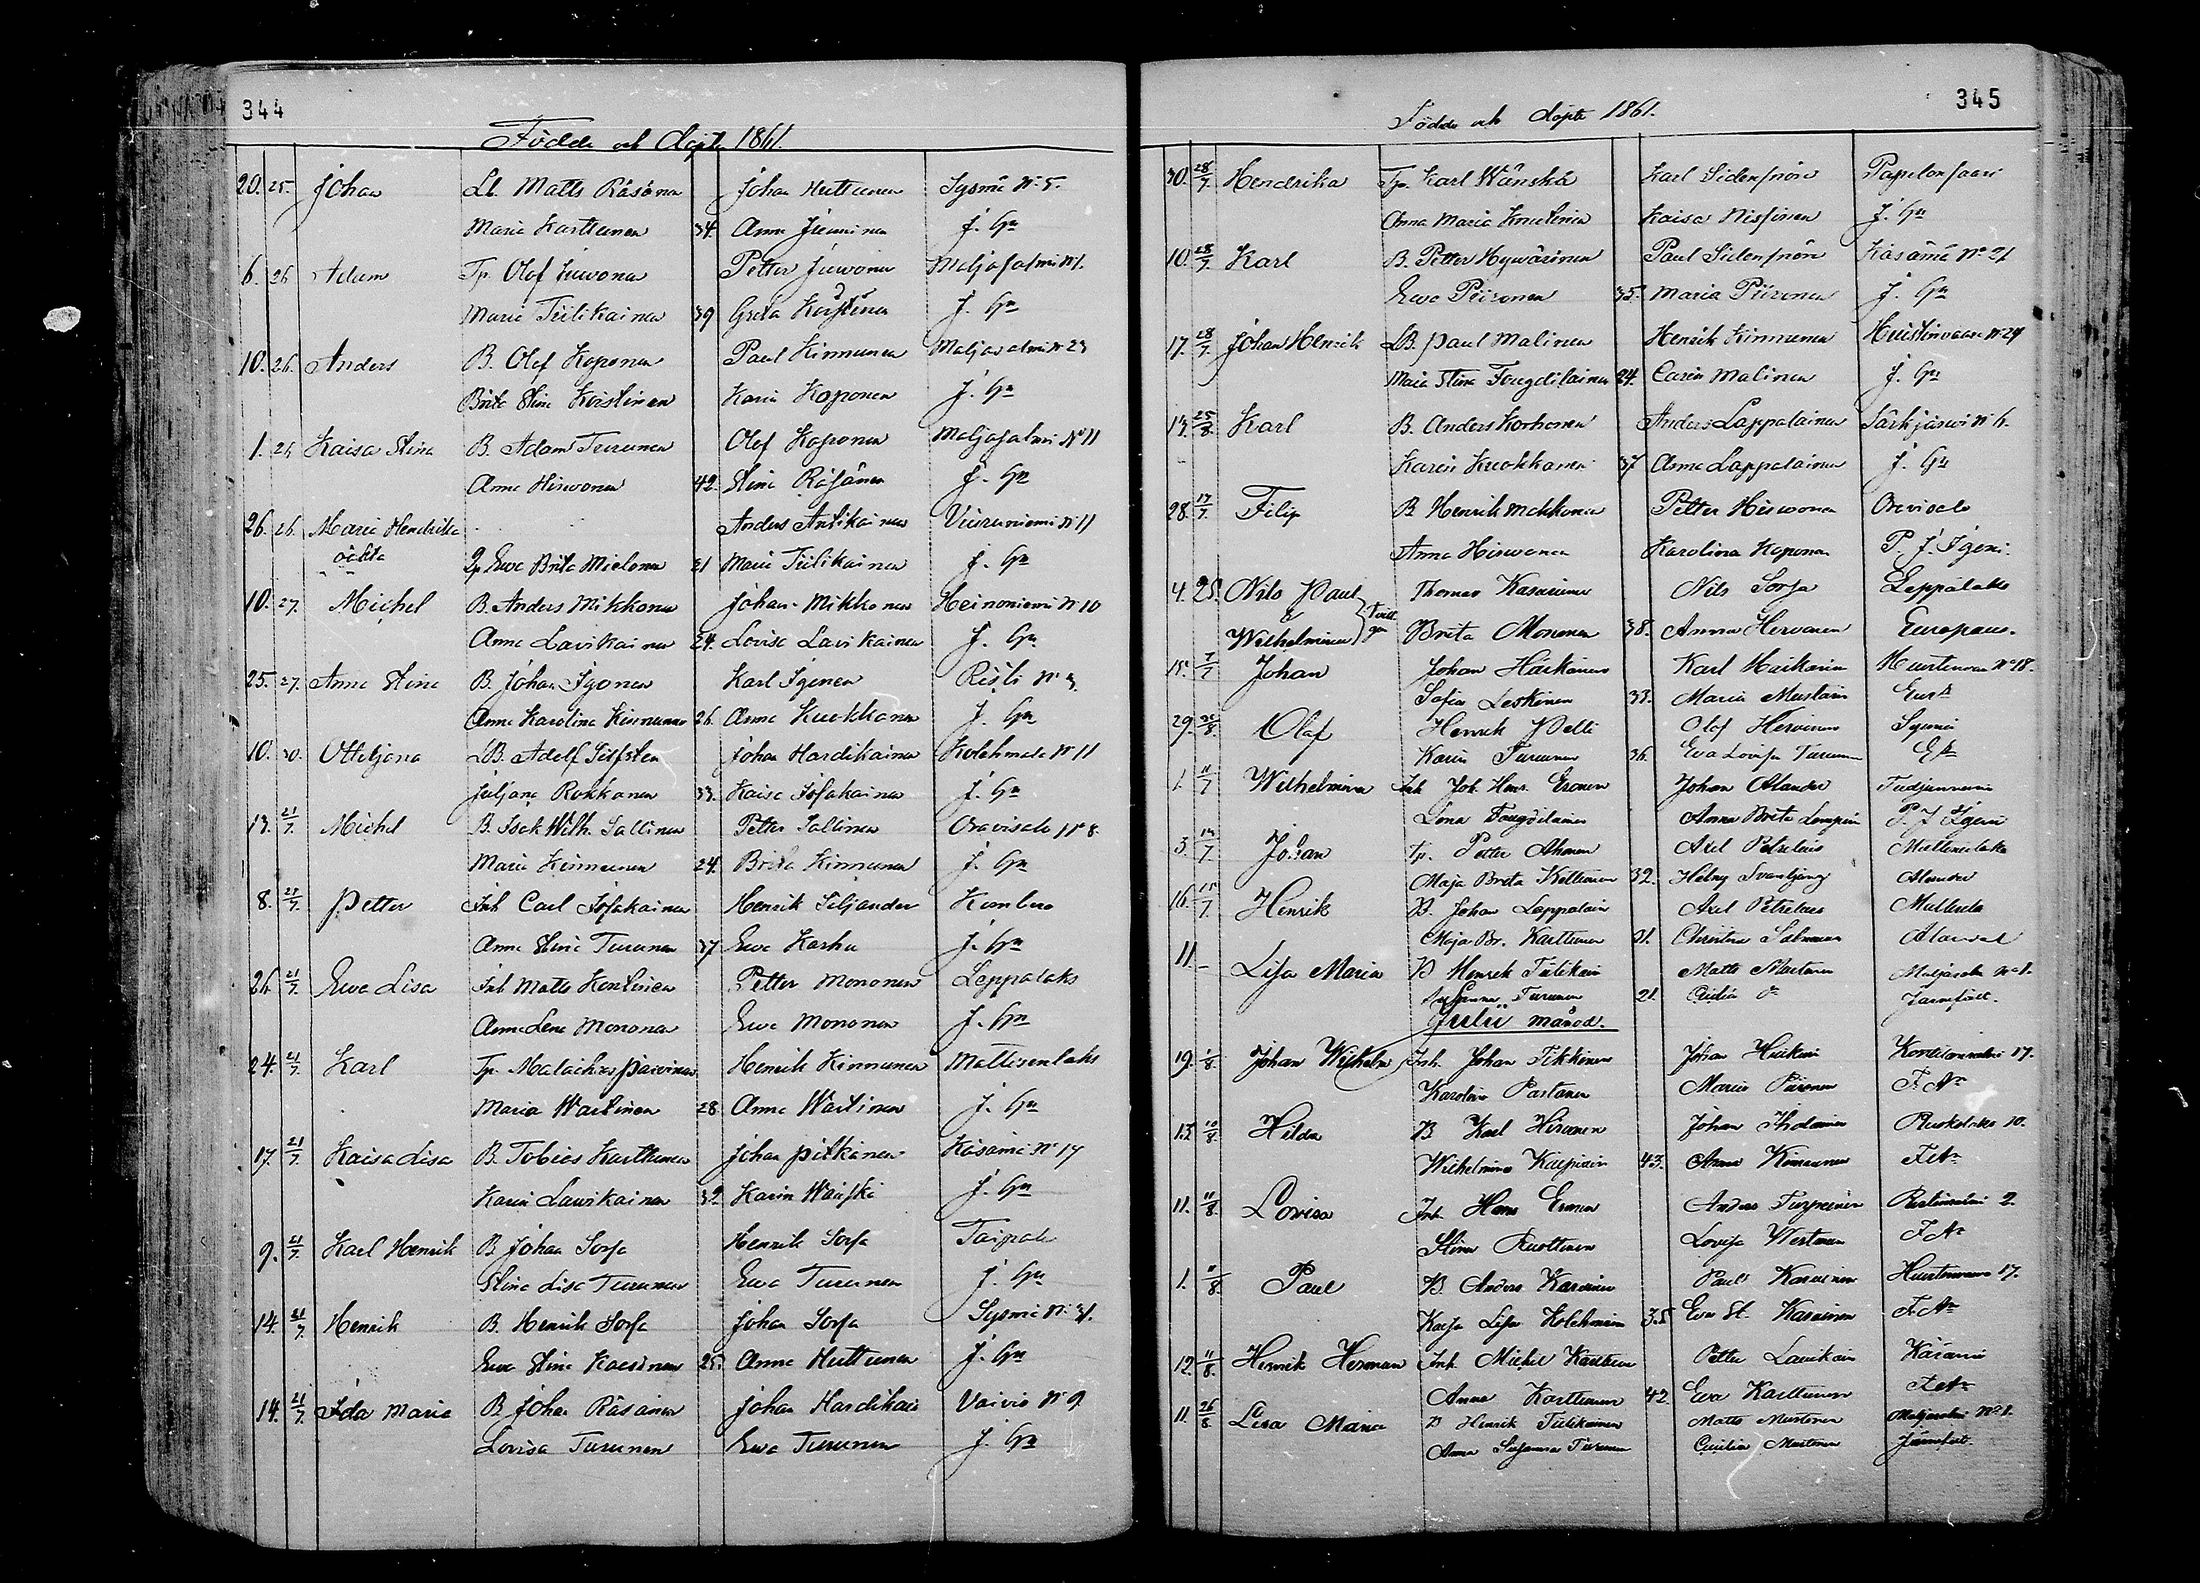 344
Födde och döpte 1861.
20. 25. Johan Lb. Matts Räsänen Johan Huttunen Sysmä No 5.
Maria Karttunen 34. Anna J. Gn
6. 26 Adam Tp. Olof Juvonen Petter Juvonen Maljasalmi No 1.
Maria Tiilikainen 39 Greta J. Gn
10. 26. Anders B. Olof Koponen Paul Kinnunen Maljasalmi No 23
Brita Stina Koistinen Karin Koponen J. Gn
1. 26 Kaisa Stina B. Adam Turunen Olof Koponen Maljasalmi No 11
Anna Hirvonen 42. Stina Räsänen J. Gn
26. 26. Maria Hendrika Anders Antikainen Viuruniemi No 11
oächta Ewa Brita Mielonen 21 Maria Tiilikainen J. Gn
10. 27. Michel B. Anders Mikkonen Johan Mikkonen Heinoniemi No 10
Anna Lavikainen 24. Lovisa Lavikainen J. Gn
25. 27. Anna Stina B. Johan Igonen Karl Igonen Risti No 3.
Anna Karolina Kinnunen 26. Anna Kuokkanen J. Gn
10. 30. Ottiljana LB. Adolf Johan Hardikainen Kolehmala No 11
Juljana Rokkanen 33. Kaisa J. Gn
13. 21/7. Michel B. Isak Wilh. Sallinen Petter Sallinen Oravisalo No 8.
Maria Kinnunen 24. Brita Kinnunen J. Gn
8. 21/7. Petter Inh Carl Henrik Siljander Kumbu
Anna Stina Turunen 37 Ewa Karhu J. Gn
26 21/7. Ewa Lisa Inh Matts Kontinen Petter Mononen Leppälaks
Anna Lena Mononen Ewa Mononen J. Gn
24. 21/7. Karl Tp. Malachias Päivinen Henrik Kinnunen Mattisenlaks
Maria Wartinen 28. Anna Wartinen J. Gn
17. 21/7. Kaisa Lisa B. Tobias Karttunen Johan Pitkänen Käsämä No 17
Karin Lavikainen 39. Karin J. Gn
9. 21/7. Karl Henrik B Johan Sorsa Henrik Sorsa Taipale
Stina Lisa Turunen Ewa Turunen J. Gn
14. 21/7. Henrik B. Henrik Sorsa Johan Sorsa Sysmä No 31.
Ewa Stina 25. Anna Huttunen J. Gn
14. 21/7. Ida Maria B Johan Räsänen Johan Hardikain Vaivio No 9.
Lovisa Turunen Ewa Turunen J. Gn
345
Födde och döpte 1861.
30. 28/7. Hendrika Tp. Karl Wänskä Karl Sidensnöre Papelonsaari
Anna Maria Knutinen Kaisa Nissinen J. Gn
10. 28/7. Karl B. Petter Hyvärinen Paul Sidensnöre Käsämä No 21
Ewa Piironen 35. Maria Piironen J. Gn
17. 28/7. Johan Henrik LB. Paul Malinen Henrik Kinnunen Huistinvaara No 24
Maria Stina Fougdilainen 24. Carin Malinen J. Gn
13. 25/8. Karl B. Anders Korhonen Anders Lappalainen Särkjärvi No 6.
Karin Kuokkanen 37 Anna Lappalainen J. Gn
28. 17/7. Filip B Henrik Mohkonen Petter Hirvonen Oravisalo
Anna Hirvonen Karolina Koponen P. J. Igoni.
4. 28. Nils Paul Thomas Kasurinen Nils Sorsa Leppälaks
& Tvill-
Wilhelmina gar Brita Mononen 38. Anna Hervonen Europæus.
15. 7/7 Johan Johan Härkönen Karl Härkönen No 18.
Sofia Leskinen 33. Maria Mustoin
29. 25/8 Olof Henrik Pelli Olof Hirvonen Sysmä
Karin Turunen 36. Eva Lovisa Turunen
1. 11/7 Wilhelmina Inh. Joh. Henr. Eronen Johan Alander
Lena Fougdilainen Anna Brita P J Igoni
3. 14/7. Johan Tp. Petter Ahonen Axel Petrelius
Maja Brita Kettunen 32. Helny Svanljung Alander
16. 15/7. Henrik B. Johan Lappalain Axel Petrelius
Maja Br. Karttunen 31. Christina Alander
11. – Lisa Maria B Henrik Tiilikain Matts Mustonen Maljasalmi No 1.
Susanna Turunen 21. Cecilia Do Järnefelt.
Julii månad.
19. 1/8. Johan Wilhelm Inh. Johan Tikkinen Johan 17.
Karolina Partanen Maria Piironen F. An
13. 10/8. Hilda B Karl Hirvonen Johan 10.
Wilhelmina 43. Anna Kinnunen F. An
11. 11/8. Lovisa Inh. Hans Eronen Anders Turpeinen 2.
Stina Ruottinen Lovisa Westman F. An
1. 11/8. Paul B. Anders Karvinen Paul Karvinen 17.
Kaisa Lisa Kolehmain 35. Eva St. Karvinen F. An
12. 11/8. Henrik Herman Inh. Michel Karttunen Petter Lavikain Käsämä
Anna Karttunen 42. Eva Karttunen F. An
11. 26/8. Lisa Maria B Henrik Tiilikainen Matts Mustonen Maljasalmi No 1.
Anna Susanna Turunen Cecilia Mustonen Järnefelt.